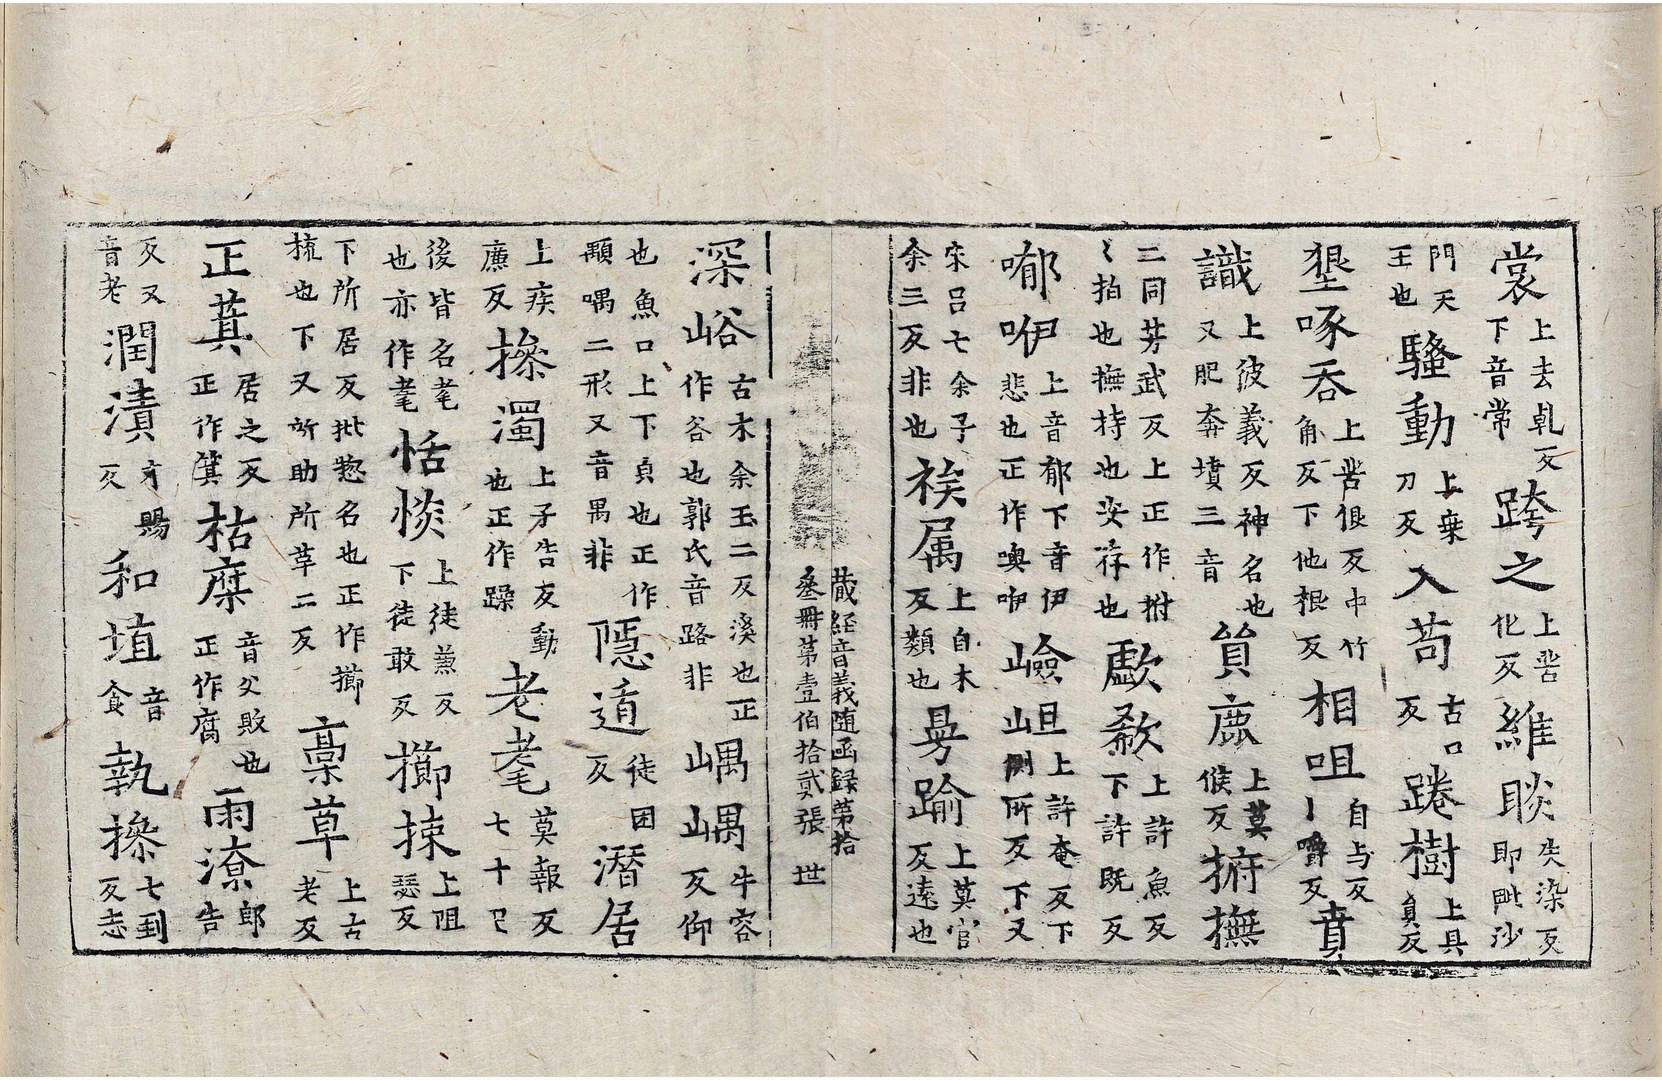 裳上去乹反下音常跨之上苦化反維睒失染反即毗沙
門天王也騷動上桒刀反入苟古口反踡樹上具負反
墾啄吞上苦佷反中竹角反下他根反相咀自与反丨嚼反賁
識上彼義反神名也又肥奔墳三音貿鹿上莫候反捬撫
二同芳武反上正作拊〻拍也撫持也安存也歔欷上許魚反下許既反
㖪咿上音郁下音伊悲也正作噢咿嶮岨上許奄反下山側所反下又
宋吕七余子余三反非也袟属上自木反類也曼踰上莫官反遠也
藏経音義随函録第拾叄冊第壹伯拾貳張 世
深峪古木余玉二反溪也正作谷也郭氏音路非嵎嵎牛容反仰
也魚口上下皃也正作顒喁二形又音禺非隱遁徒困反潛居
上疾廉反摻濁上子告反動也正作躁老耄莫報反七十已
後皆名耄也亦作耄恬惔上徒蒹反下徒敢反擳揀上阻瑟反
下所居反批惣名也正作擳梳也下又所助所草二反稾草上古老反
正萁居之反正作箕枯糜音父敗也正作腐雨潦郎告
反又音老潤漬才賜反和埴音食執摻七到反志